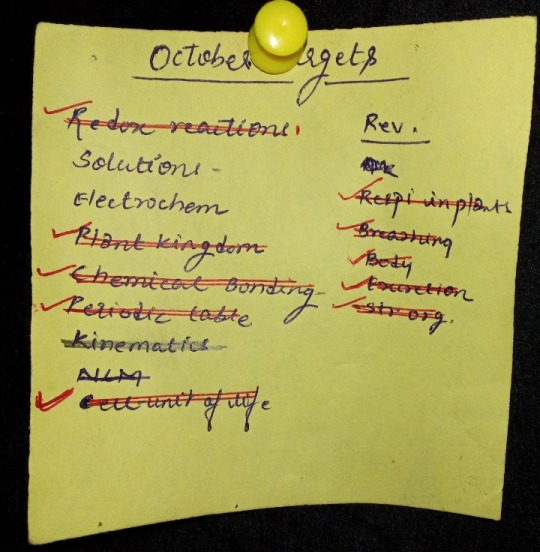 October Targets
Redox reactions.
Solutions -
Electrochem
Plant kingdom
Chemical Bonding
Periodic table
Kinematics
NLM
Cell unit of life
Rev.
Respi in plants
Breathing
Body
Excretion
Str org.